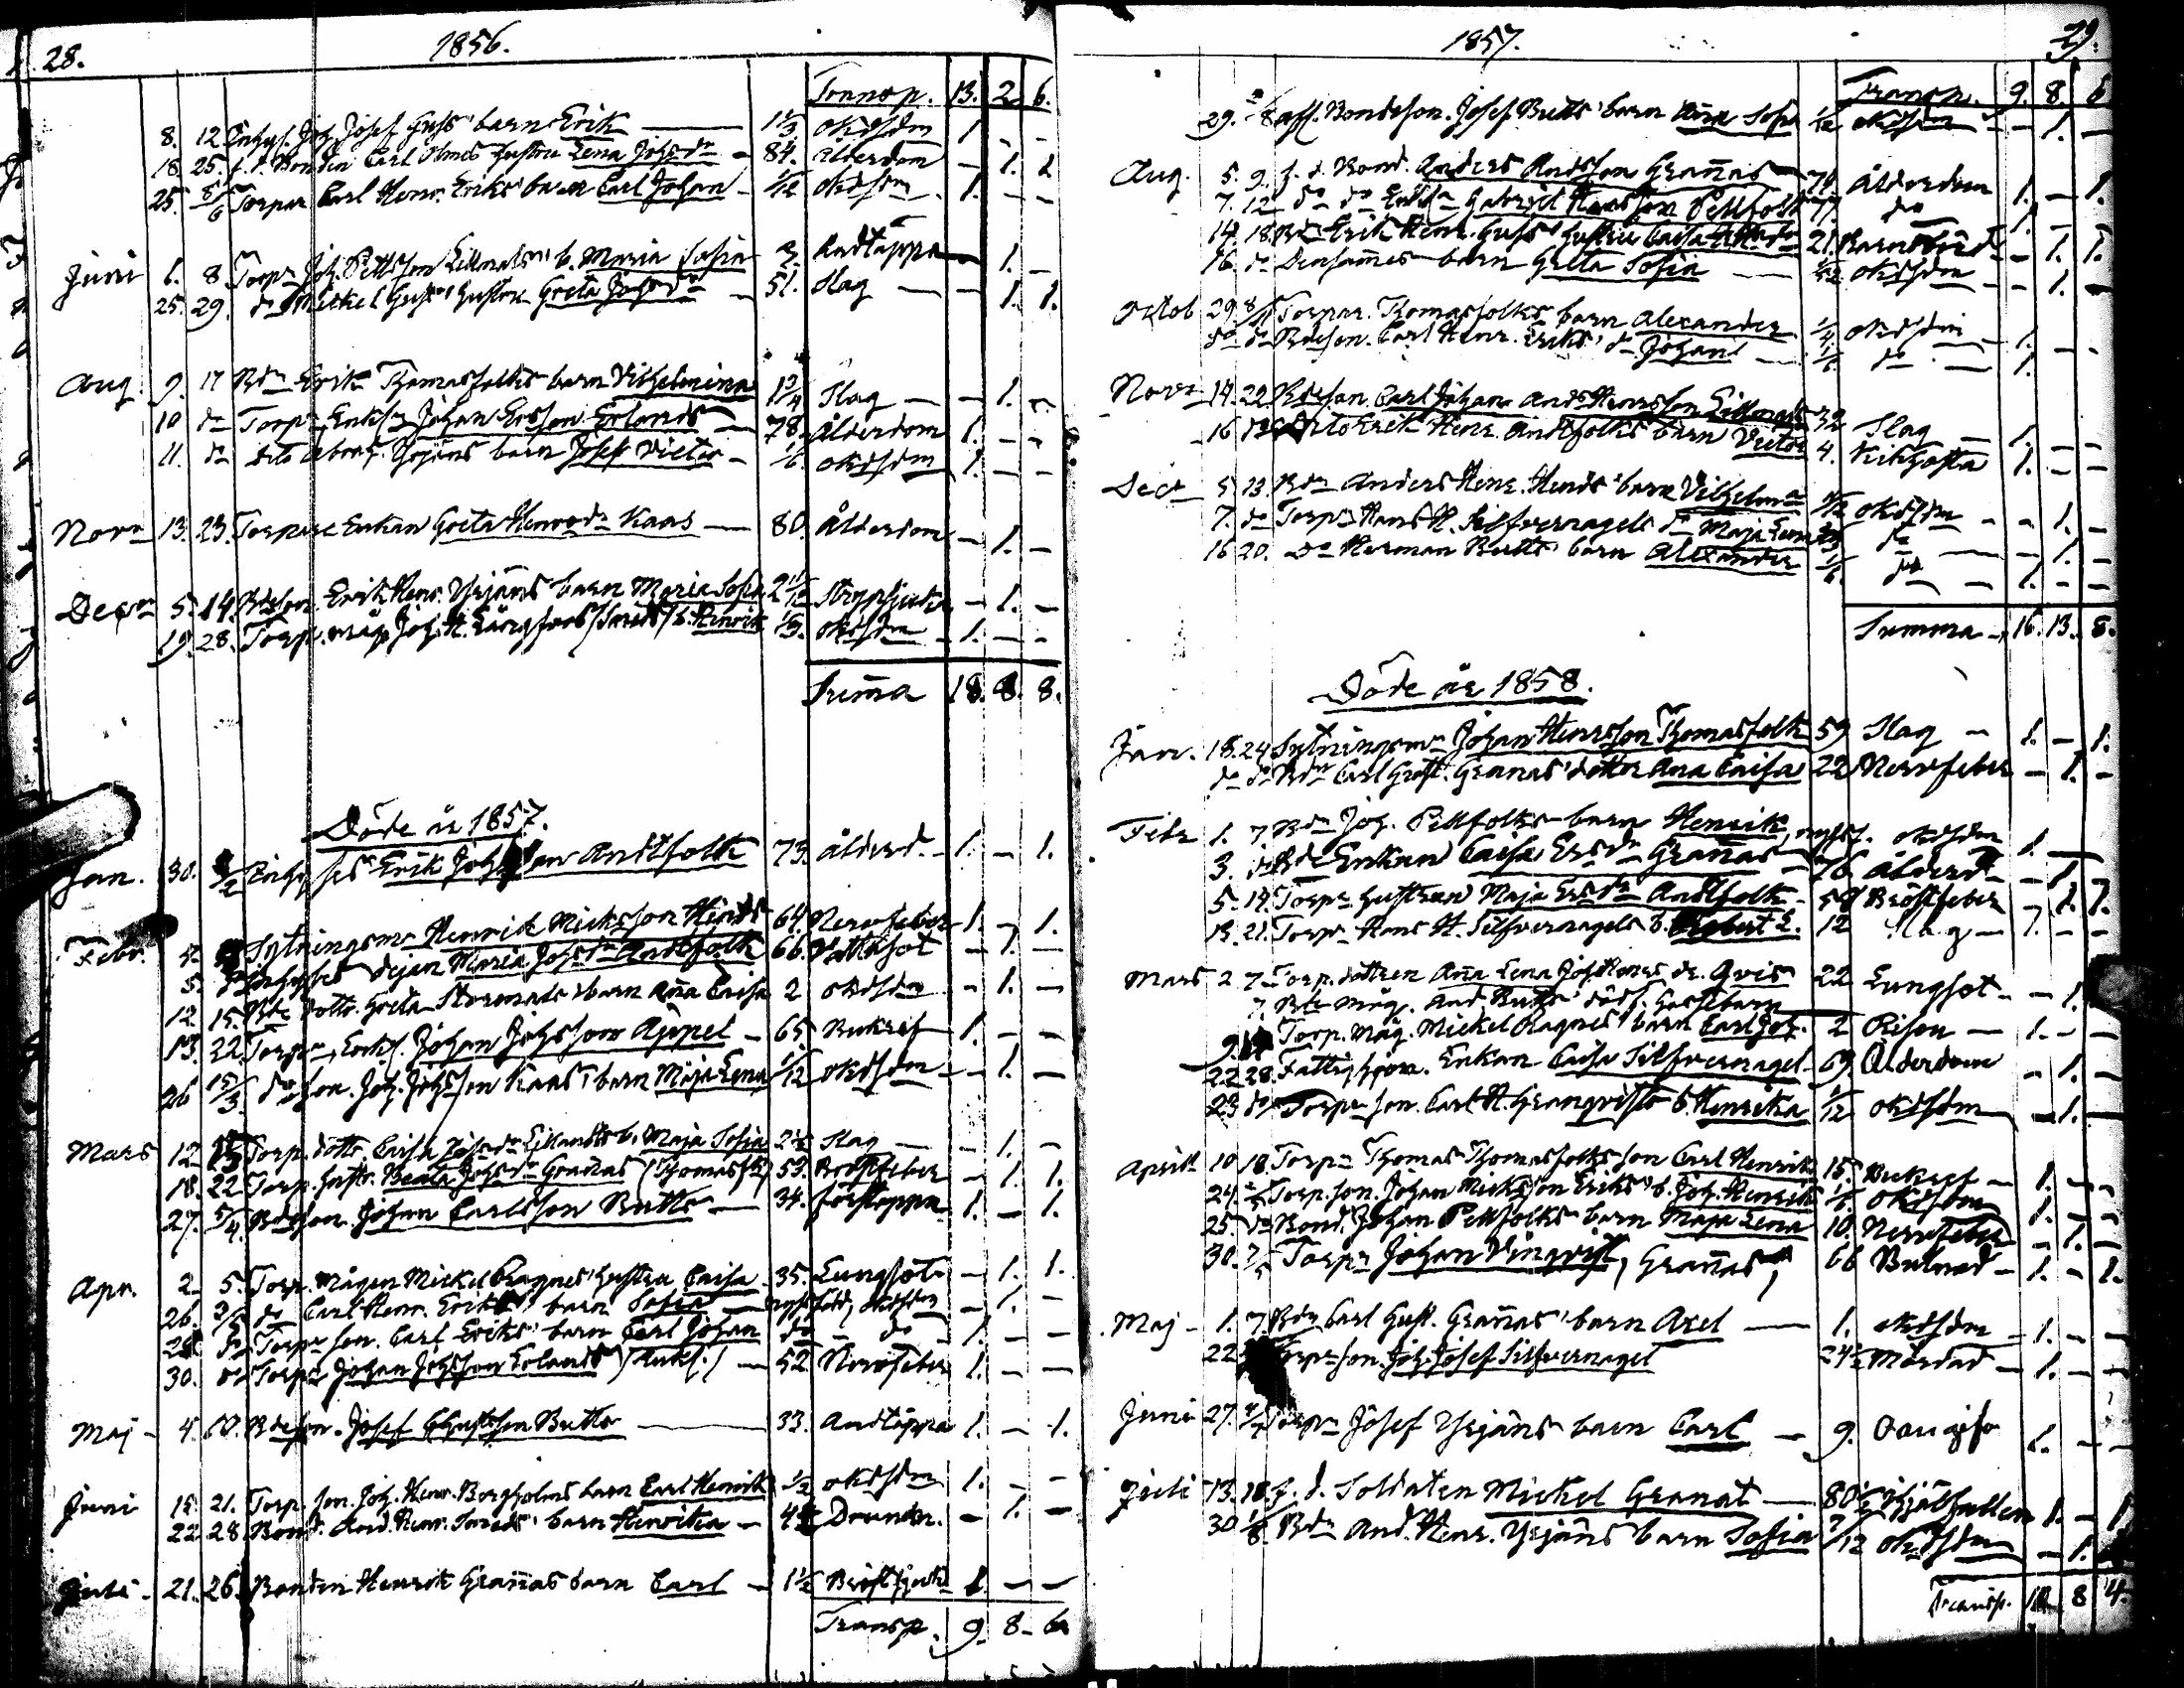 28. 1856.
Transp. 13. 2. 6.
8. 12. Inhys. Joh. Josef Guss' barn Erik — 1 1/3 okdsdm 1. - -
18. 25. f. d. Bonden Carl Olins hustru Lena Johsdr - 84. Ålderdom - 1. 1
25. 8/6 Torpar Carl Henr. Eriks' barn Carl Johan - 1/12 okdsdm. 1. - -
Juni 6. 8 Torpn Joh. Pettsson Lillmats' b. Maria Sofia 3. Andtäppa - 1. -
25. 29. do Mickel Guss' hustru Greta Johsdr - 51. Slag - - 1. 1.
Aug. 9. 17 Bdn Erik Thomasfolks barn Vilhelmina 1 3/4 Slag - - 1. -
10 do Torpn Enkl. Johan Ersson Erlands - 78. Ålderdom 1. - -
11. do barn Josef Victor - 1/6. okdsdm 1. - -
Novr 13. 23. Torpare Enkan Greta Henrsdr Kaas — 80. Ålderdom - 1. -
Decr 5. 14. Bdeson. Erik Henr. Yrjäns barn Maria Sofia 2 1/12 Strypsjuka - 1. -
19. 28. Torp. måg Joh. H. b. Henrik 1/3. okdsdm - 1. - -
Summa 18. 8. 8.
Döde år 1857.
Jan. 30. 8/2 Erik Johsson Andtfolk 73. ålderd. - 1. - 1.
Febr. Sytningsm. Henrik Micksson Hinds 64. Nervfeber 1. - 1.
5. do Inhyses Maria Johsdr Andtfolk 66. Vattusot - 1. -
12. 15. Bde dottr. Greta Stormats' barn Anna Caisa 2 okdsdm - 1. -
13. 22. Torpn, Enkl. Johan Johsson Appel - 65. Bukref 1. - -
26 15/3. do son. Joh. Johsson Kaas' barn Maja Lena 1/12 okdsdm - - 1. -
Mars 12. 15 Torp. dottr. Caisa Johsdr b. Maja Sofia 2 1/2 Slag - - 1. -
18. 22 Torp. hustr. Beata Johsdr Grannas (Thomasfolk) 53. Bröstfeber - 1. 1.
27. 5/4 Bdeson. Johan Carlsson Butts - 34. förstoppn. 1. - 1.
Apr. 2. 5. Torp. Mågen Mickel Ragnes' hustru Caisa 35. Lungsot - 1. 1.
26. 3/5 do Carl Henr. Eriks' barn Sofia - nyssfödd, okdsdm - 1. -
28. do Torpn son. Carl Eriks' barn Carl Johan do - do - 1. - -
30. do Torpn Johan Johsson Erlands (Enkl.) - 52 Nervfeber 1. - -
Maj - 4. 10. Bdeson. Josef Gustsson Butts — 33. Andtäppa 1. - 1.
Juni 15. 21. Torp. son. Joh. Henr. Borgholms barn Carl Henrik 1/2 okdsdm 1. - -
22. 28 Bond. And. Henr. Smeds' barn Henrika - 4 1/2 Drunkn. - 1. -
Juli - 21. 26. Bonden Henrik Grannas barn Carl - 1 1/2 Bröstsjuka 1. - -
Transp. 9. 8. 6
1857. 29.
Transp. 9. 8. 6
29. Bondeson. Josef Butts' barn Anna Sofia 1/12 okdsdm - 1. -
Aug. 5. 9. f. d. Bond. Anders Andsson Grannas - 74. Ålderdom 1. - 1.
7. 12 do do Enkl. Gabriel Hansson Pellfolk 77. do 1. -
14. 18. Bdn Erik Henr. Guss' hustru Caisa 21. Barnsbörd - 1. 1.
16. do Densammes barn Greta Sofia — okdsdm - - 1. -
Octob 29. 8/11 Torpar. Thomasfolks barn Alexander 1/4 okdsdm - 1. - -
do do Bdeson. Carl Henr. Eriks' do Johan - 1/6. do - 1.
Novr 14. 22. Bdeson. Carl Johan Andr Henrsson Lillmats 32 Slag - 1. -
16 do Erik Henr. Andtfolks barn Victor 4. Kikhosta 1. - -
Decr 5. 13 Bdn Anders Henr. Hinds' barn Vilhelmina okdsdm - - 1. -
7. do Torpn Hans H. Silfvernagels do Maja Lena do - - 1. -
16 20. do Herman Butts' barn Alexander 1/6 do - 1. - -
Summa - 16. 13. 8.
Döde år 1858.
Jan. 18. 24 Sytningsmn Johan Henrsson Thomasfolk 59 Slag - 1. - 1.
do do Bdn Carl Gust. Grannas' dotter Ana Caisa 22 Nervfeber - 1. -
Febr 1. 7. Bdn Joh. Pellfolks barn Henrik, nyssf. okdsdm 1. - -
3. do Bde Enkan Caisa Ersdr Grannas - 76. Ålderd. - 1.
5. 14. Torpr hustrun Maja Ersdr Andtfolk - 58 Bröstfeber - 1. 1.
13. 21. Torpn Hans H. Silfvernagels b. Robert E. 12 Slag - 1. - -
Mars 2 7. Torp. dottren Anna Lena Joh. Henrs dr. Qvis 22 Lungsot - - 1.
7. Bde måg. And. Butts' dödf. Gossebarn
9. 14 Torp. Måg. Mickel Ragnes' barn Carl Joh. 2 Risen - 1. - -
22 28. Fattighjon. Enkan Caisa Silfvernagel - 69. Ålderdom - 1.
23 do Torpn son. Carl H. Granqvists b. Henrika 1/12 okdsdm - 1. -
April 10 18. Torpn Thomas Thomasfolks son Carl Henrik 15. Bukref - 1. - -
24. 2/5 Torp. son. Johan Micksson Eriks' b. Joh. Henrik 1/6. okdsdm 1. - -
25. do Bond. Johan Pellfolks barn Maja Lena 10. Nervfeber - 1. -
30. 2/5 Torpn Johan Vinqvist, Grannas, 66 Bulnad - 1. - 1.
Maj - 1. 7. Bdn Carl Gust. Grannas' barn Axel — 1. okdsdm - 1. - -
22 Torpr son. Joh. Josef Silfvernagel 24 1/2 Mördad - 1. - -
Juni 27. 4/7 Torpn Josef Yrjäns barn Carl - 9. 1. - -
Juli 13. 18. f. d. Soldaten Mickel Granat — 80 1/2 Ihjälfallen 1. - 1
30 1/8. Bdn And. Henr. Yrjäns barn Sofia 7/12 okdsdm - 1. -
Transp. 8 4.